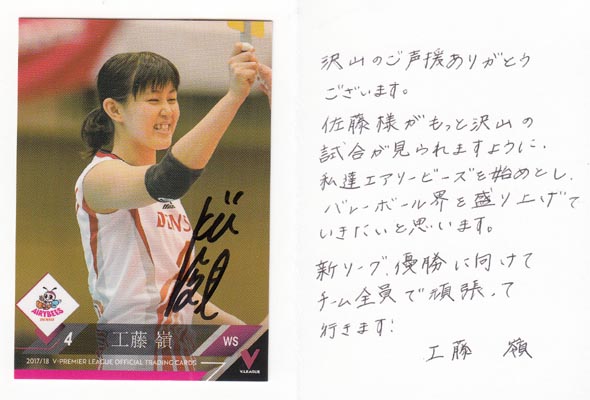 DENS
AIRYBEES
4
工藤 嶺
WS
2017/18 V·PREMIER LEAGUE OFFICIAL TRADING CARDS
V.LEAGUE
沢山のご声援ありがとう
ございます。
佐藤様がもっと沢山の
試合が見られますように、
私達エアリービーズを始めとし、
バレーボール界を盛り上げて
いきたいと思います。
新リーグ、優勝に向けて
チーム全員で頑張って
行きます!
工藤 嶺